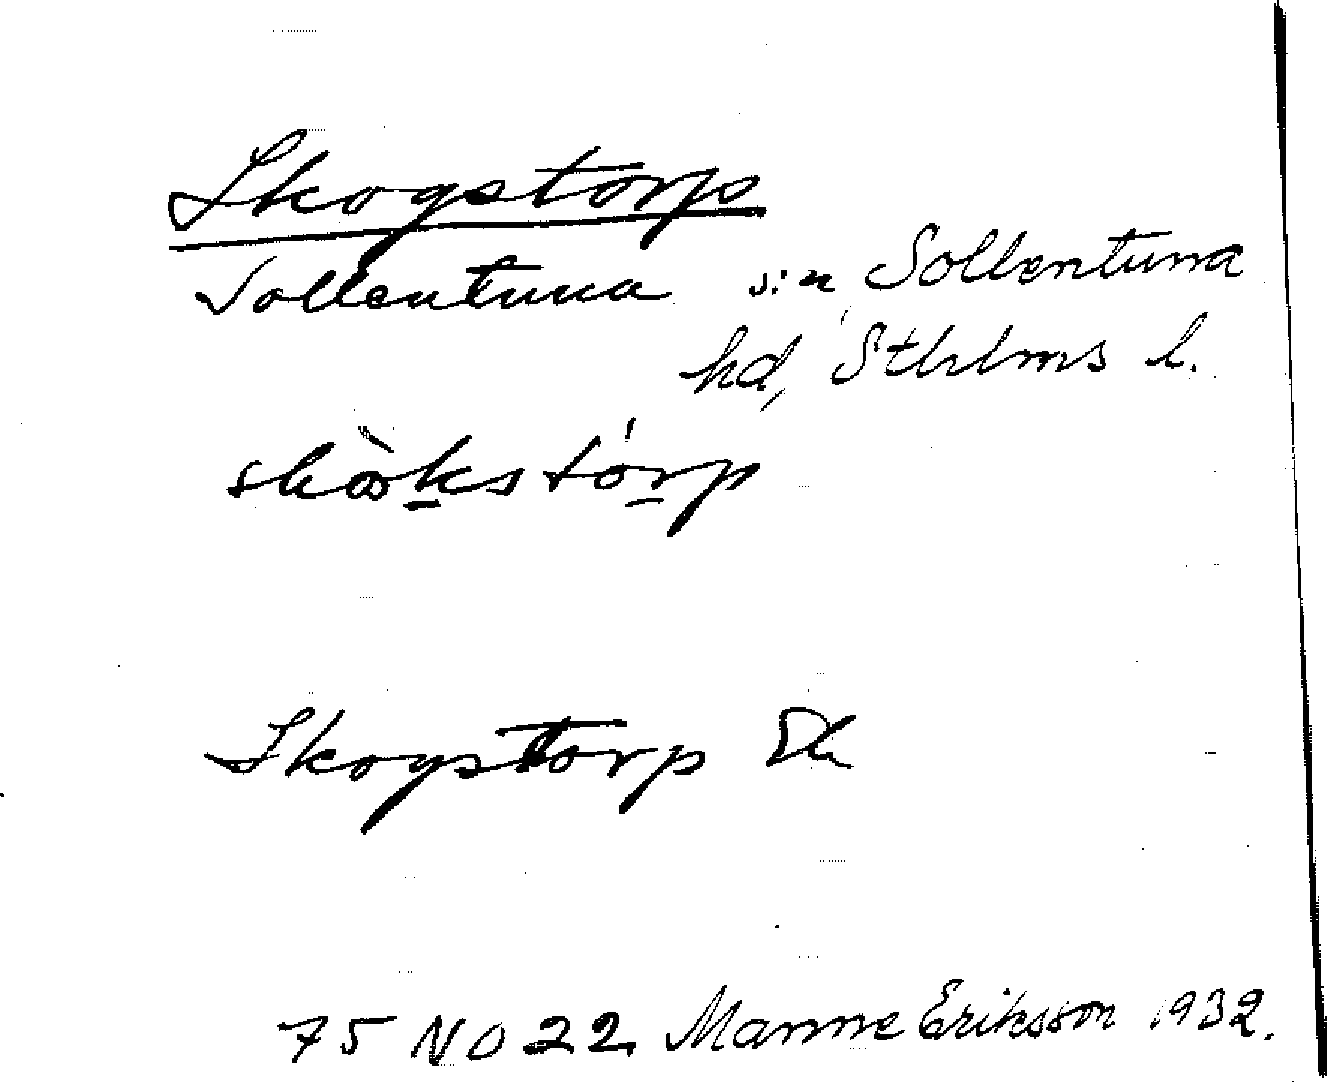 Skogstorp
Sollentuna s:n Sollentuna
hd, Sthlms l.
Skogstorp
75 NO 22 Manne Eriksson 1932.